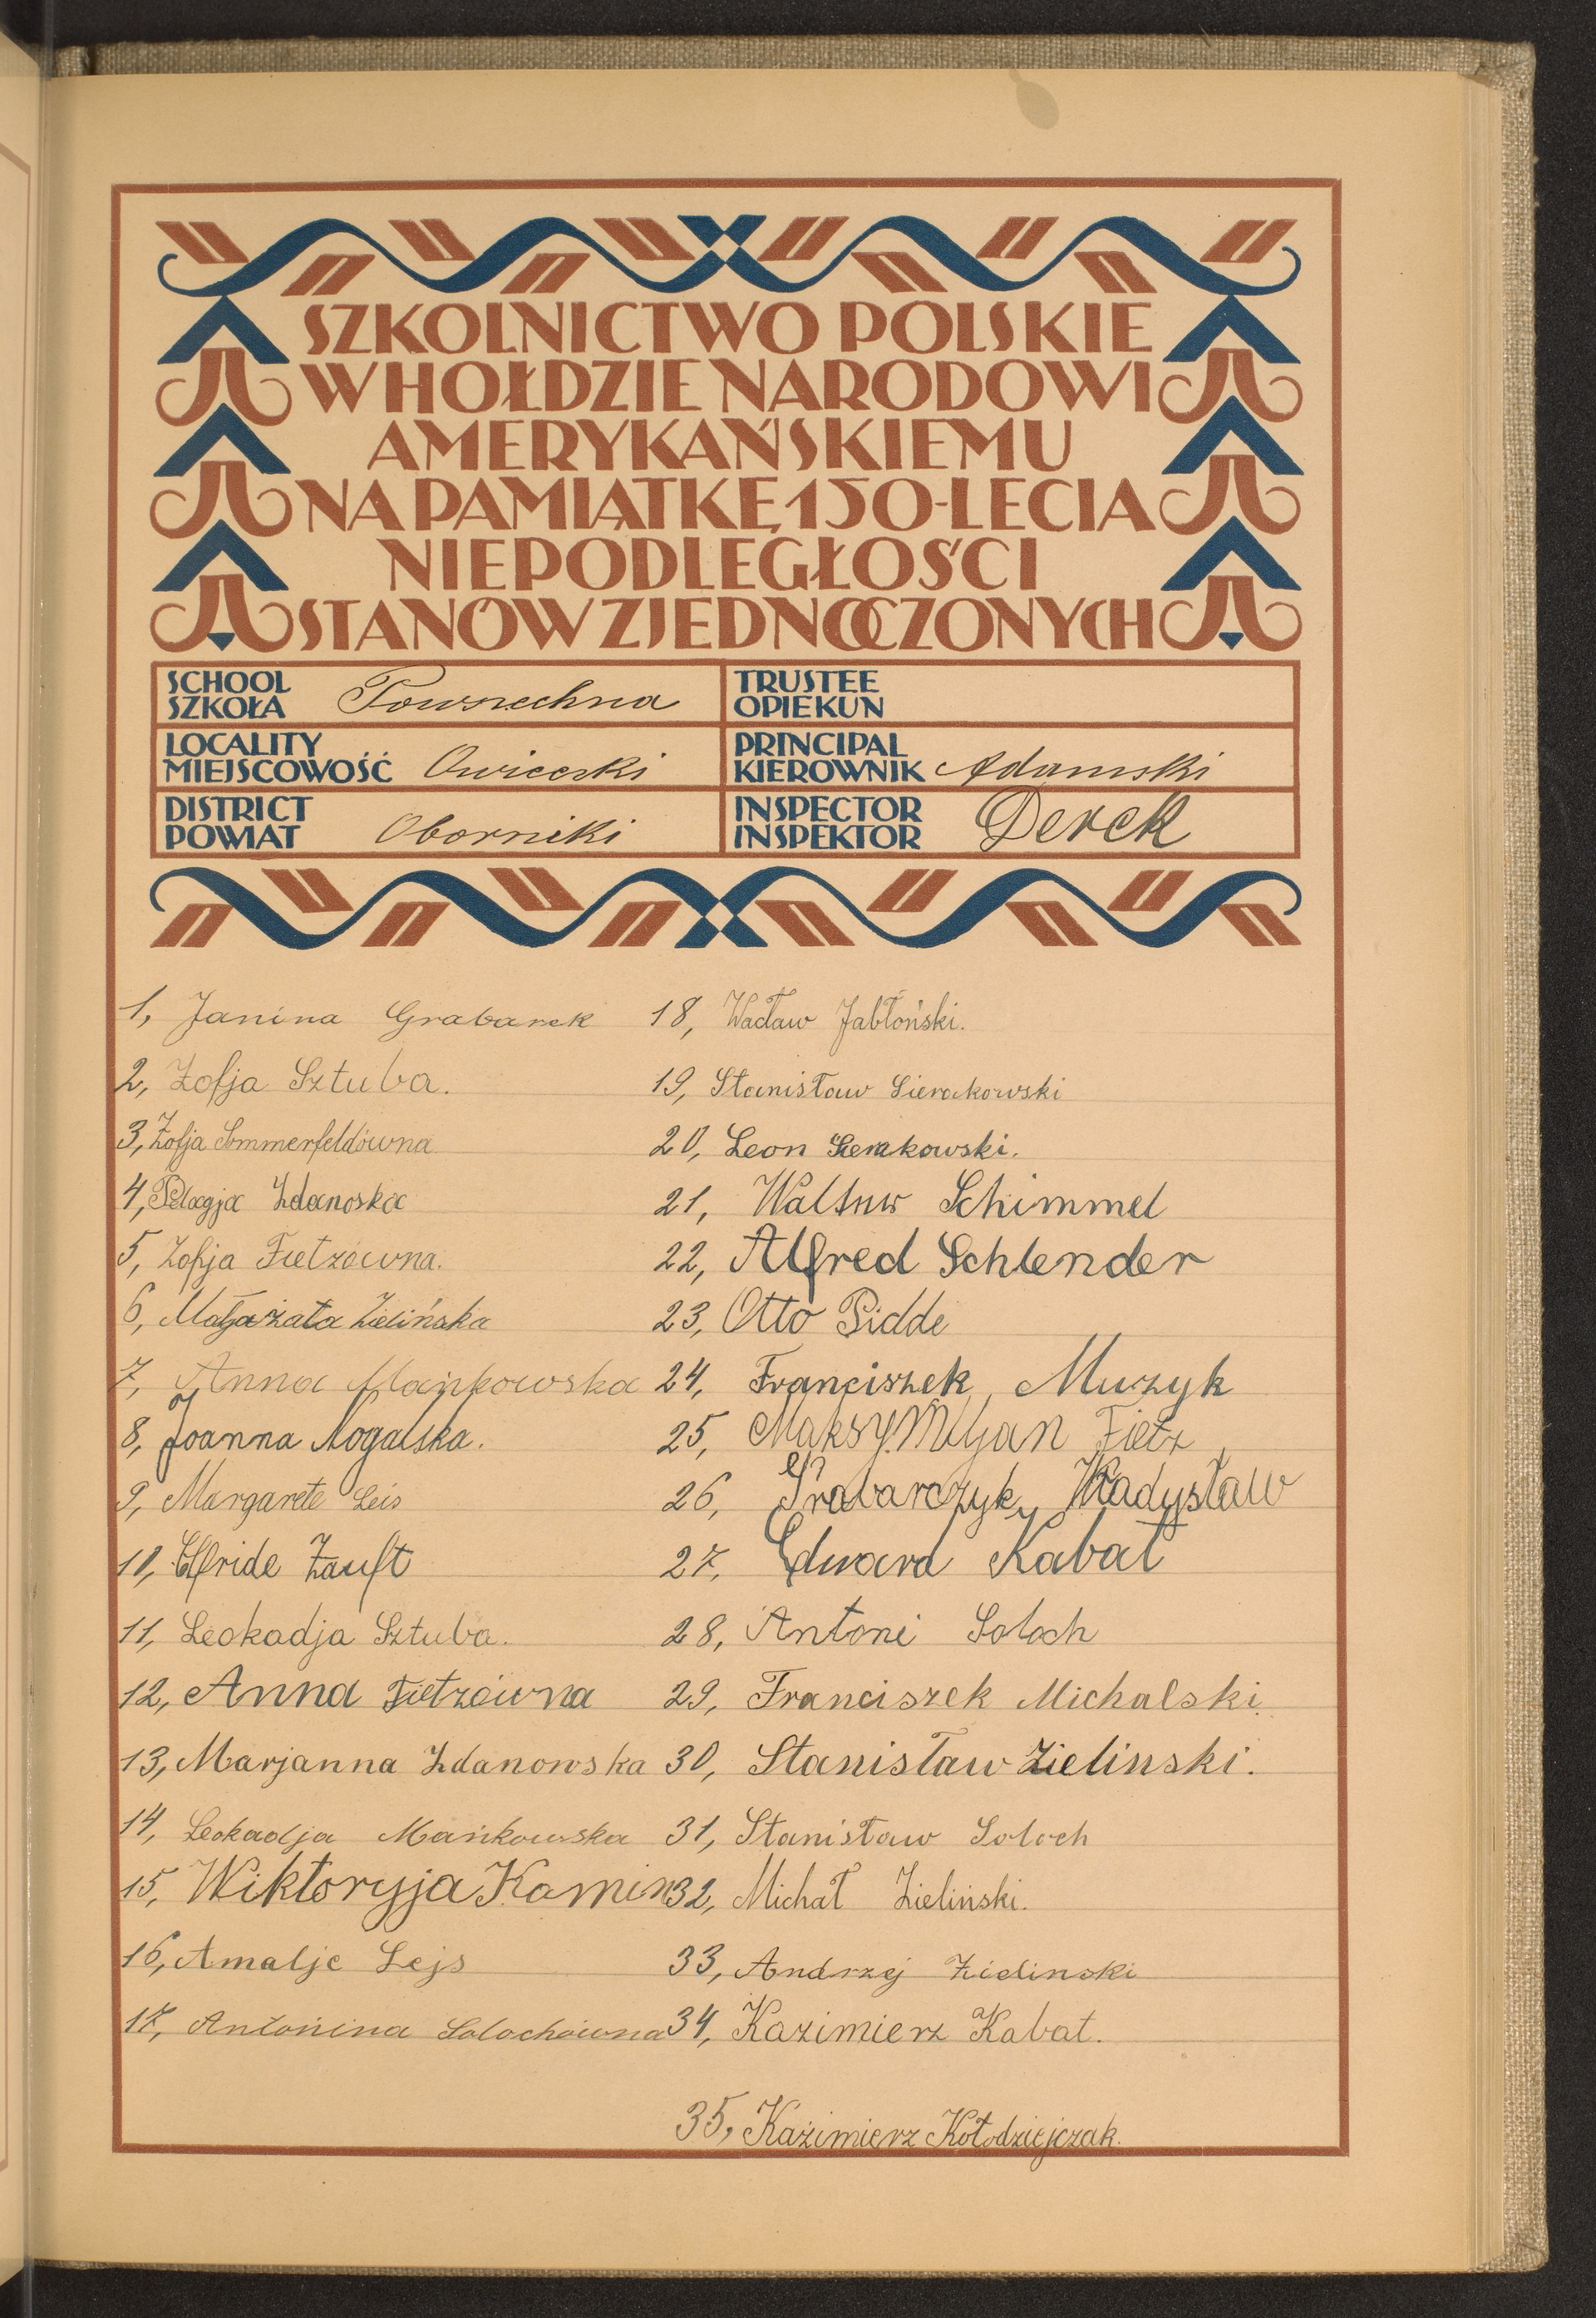 SZKOLNICTWO POLSKIE
W HOŁDZIE NARODOWI
AMERYKAŃSKIEMU
NA PAMIĄTKĘ 150-LECIA
NIEPODLEGŁOŚCI
STANÓW ZJEDNOCZONYCH
SCHOOL
SZKOŁA Powszechna
TRUSTEE
OPIEKUN
LOCALITY
MIEJSCOWOŚĆ Owieczki
PRINCIPAL
KIEROWNIK Adamski
DISTRICT
POWIAT Oborniki
INSPECTOR
INSPEKTOR Derek
1, Janina Grabarek
2, Zofja Sztuba.
3, Zofja Sommerfeldówna
4, Pelagja Zdanoska
5, Zofja Fietzówna.
6, Małgożata Zielińska
7, Anna Mańkowska
8, Joanna Nogalska.
9, Margarete Leis
10, Elfride Zauft
11, Leokadja Sztuba.
12, Anna Fietzówna
13, Marjanna Zdanowska
14, Leokadja Mańkowska
15, Wiktoryja Kamin
16, Amalje Lejs
17, Antonina Solochówna
18, Wacław Jabłoński.
19, Stanisław Sierakowski
20, Leon Sierakowski.
21, Schimmel
22, Alfred Schlender
23, Otto Pidde
24, Franciszek Muzyk
25, Maksymiljan Fietz
26, Grabarczyk, Władysław
27, Edward Kabat
28, Antoni Soloch
29, Franciszek Michalski.
30, Stanisław Zielinski.
31, Stanisław Soloch
32, Michał Zieliński.
33, Andrzej Zielinski
34, Kazimierz Kabat.
35, Kazimierz Kołodziejczak.